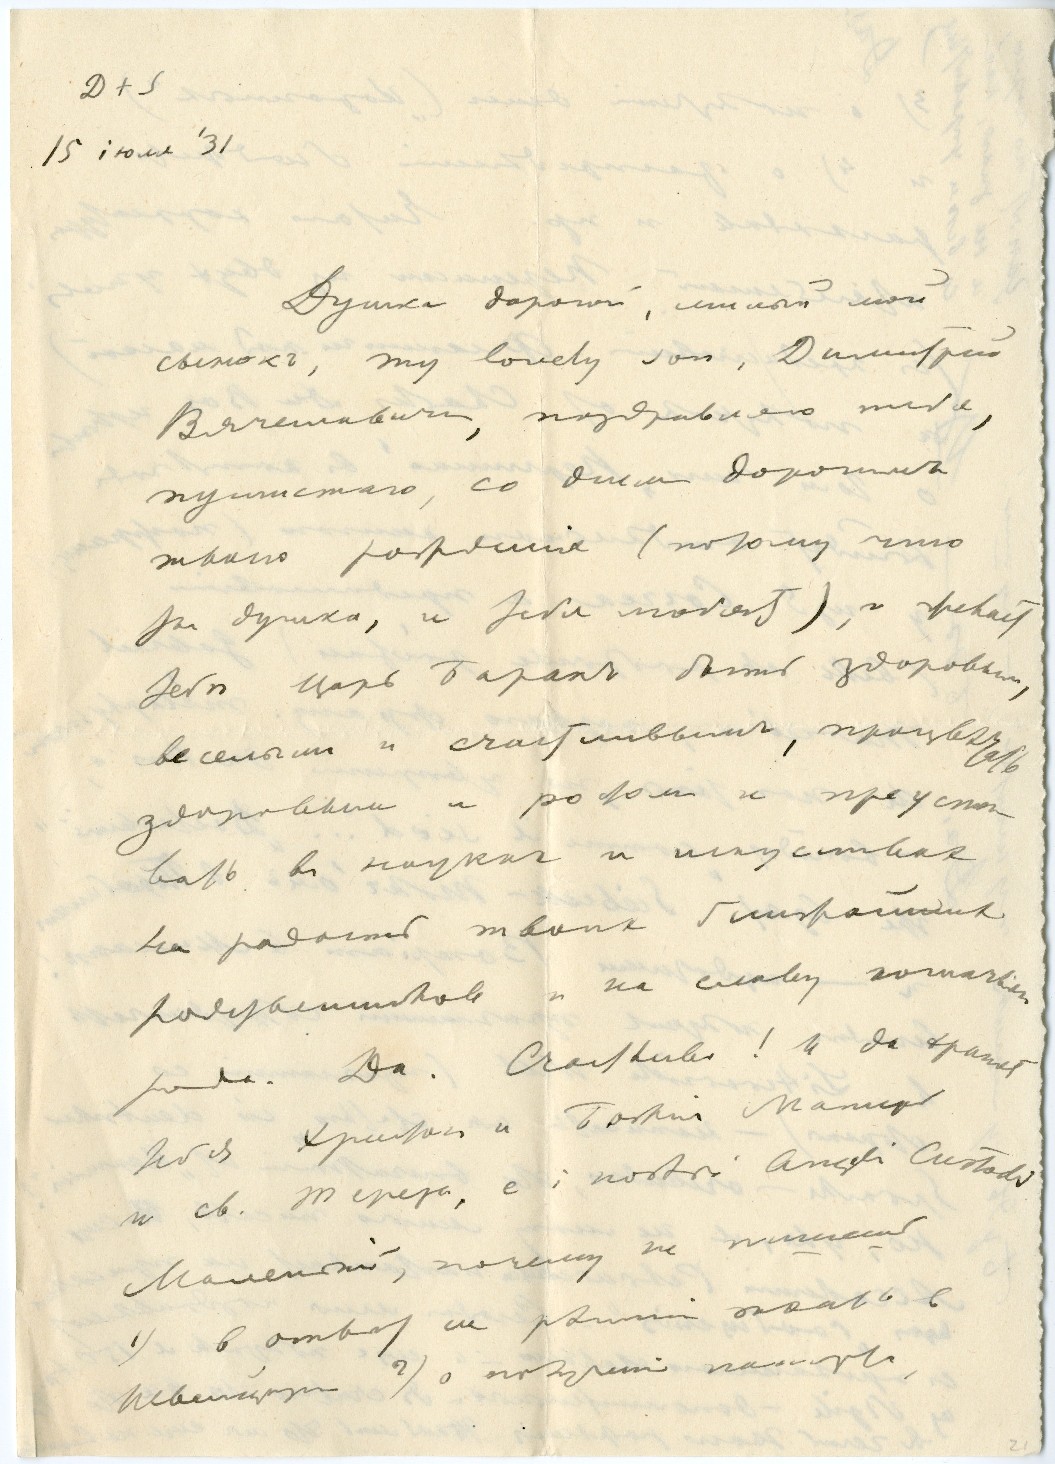 D + S
15 іюля '31
Душка дорогой, милый мой
сынокъ, my lovely son, Димитрій
Вячеславичъ, поздравляю тебя,
пушистаго, со днемъ дорогимъ
твоего рожденія (потому что
ты душка, и тебя любятъ), и желаетъ
тебѣ царь Баранъ быть здоровымъ,
веселымъ и счастливымъ, процвѣтать
здоровьемъ и ростомъ и преуспѣ
вать въ наукахъ и искусствахъ
на радость твоихъ ближайшихъ
родственниковъ и на славу
рода. Да. Счастливо! И да хранятъ
тебя Христосъ и Божія Матерь
и св. Тереза, e i nostri Angeli Custodi
Маленькій, почему не пишешь
1) в отвѣт на рѣшеніе ѣхать в
2) о полученіи паспорта,
21